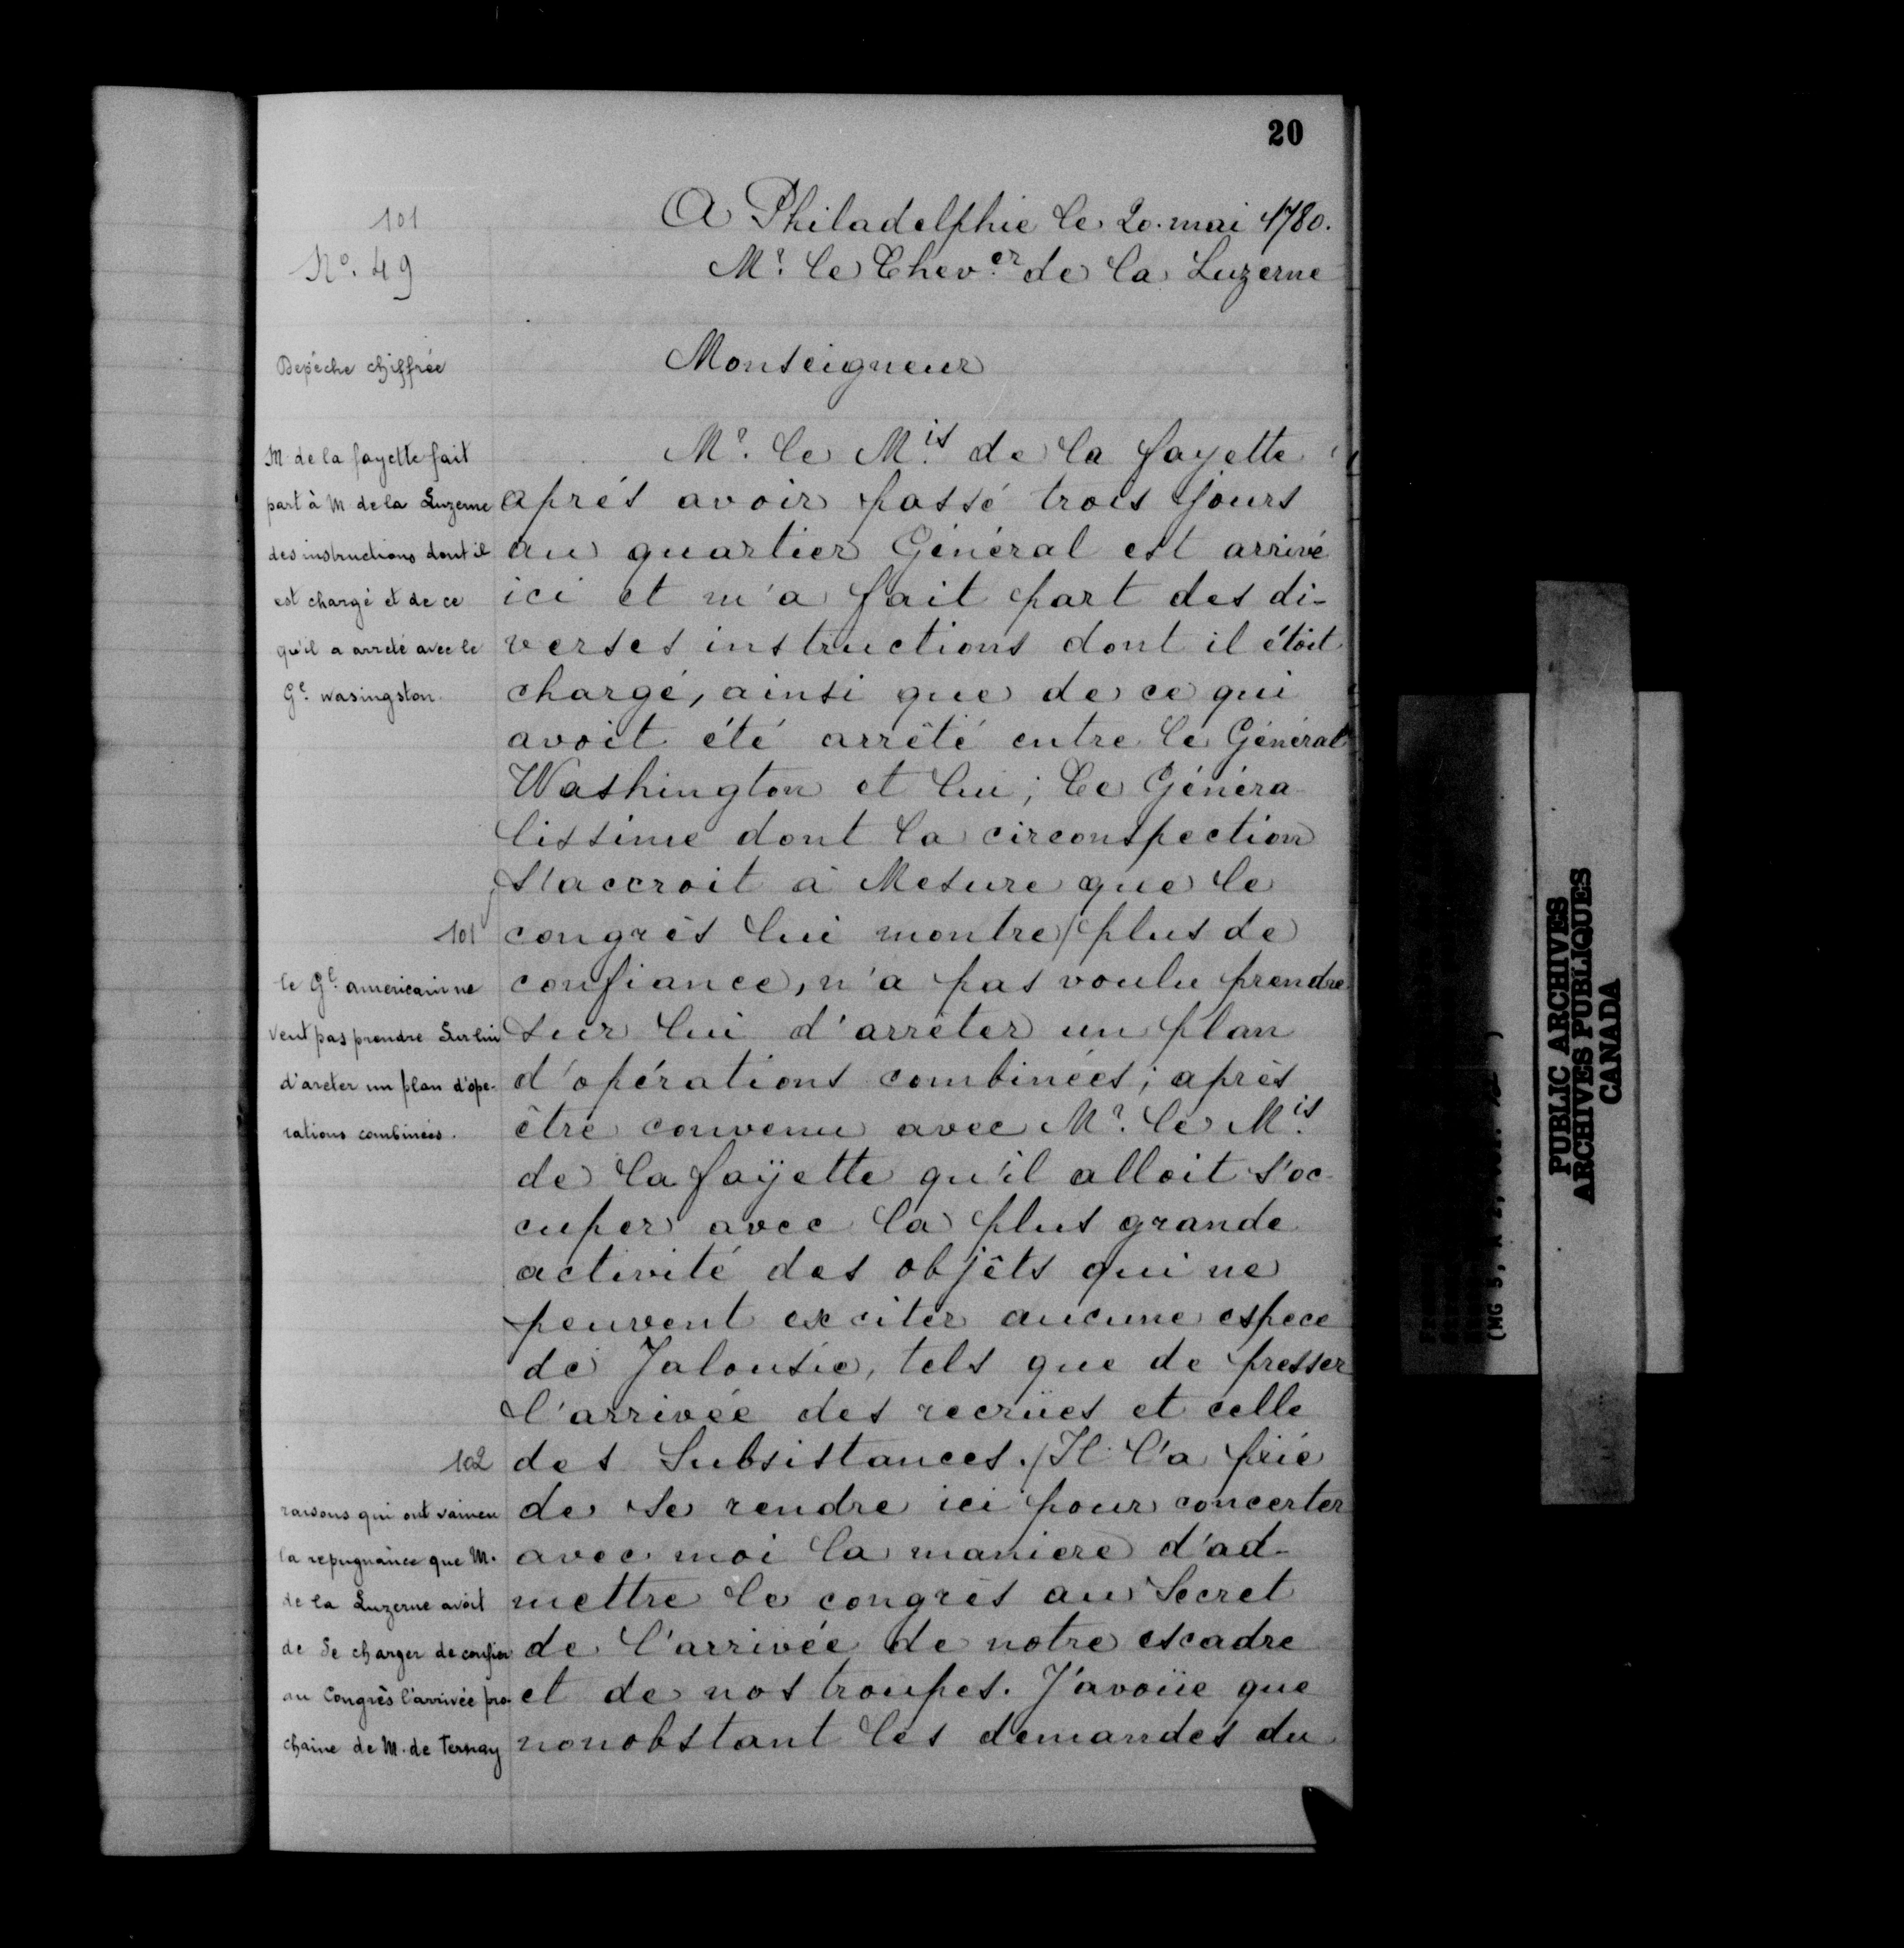 20
101
A Philadelphie le 20. mai 1780.
No. 49
Mr. le Chever. de la Luzerne
Depéche chiffrée
Monseigneur
M de la fayette fait
part à M de la Luzerne
des instructions dont il
est chargé et de ce
qu'il a arrété avec le
Ge. wasingston.
Mr. le Mis. de la fayette
aprés avoir passé trois jours
au quartier Général est arrivé
ici et m'a fait part des di-
verses instructions dont il étoit
chargé, ainsi que de ce qui
avoit été arrêté entre le Général
Washington et lui; Ce Généra
lissime dont la circonspection
s'accroit à Mesure que le
101
congrès lui montre / plus de
confiance, n'a pas voulu prendre
sur lui d'arrêter un plan
d'opérations combinées; après
être convenu avec Mr. le Mis.
de la faÿette qu'il alloit s'oc
cuper avec la plus grande
activité des objêts qui ne
peuvent exciter aucune espece
de Jalousie, tels que de presser
l'arrivée des recrües et celle
le Gl. americain ne
veut pas prendre Sur lui
d'areter un plan d'ope-
rations combinées.
102
des Subsistances. / Il l'a prié
de se rendre ici pour concerter
avec moi la maniere d'ad-
mettre le congrès au Secret
de l'arrivée de notre escadre
et de nos troupes. J'avoüe que
nonobstant les demandes du
raisons qui ont vaincu
la repugnance que M.
de la Luzerne avoit
de Se charger de confier
au Congrès l'arrivée pro-
chaine de M. de Ternay
PUBLIC ARCHIVES
ARCHIVES PUBLIQUES
CANADA